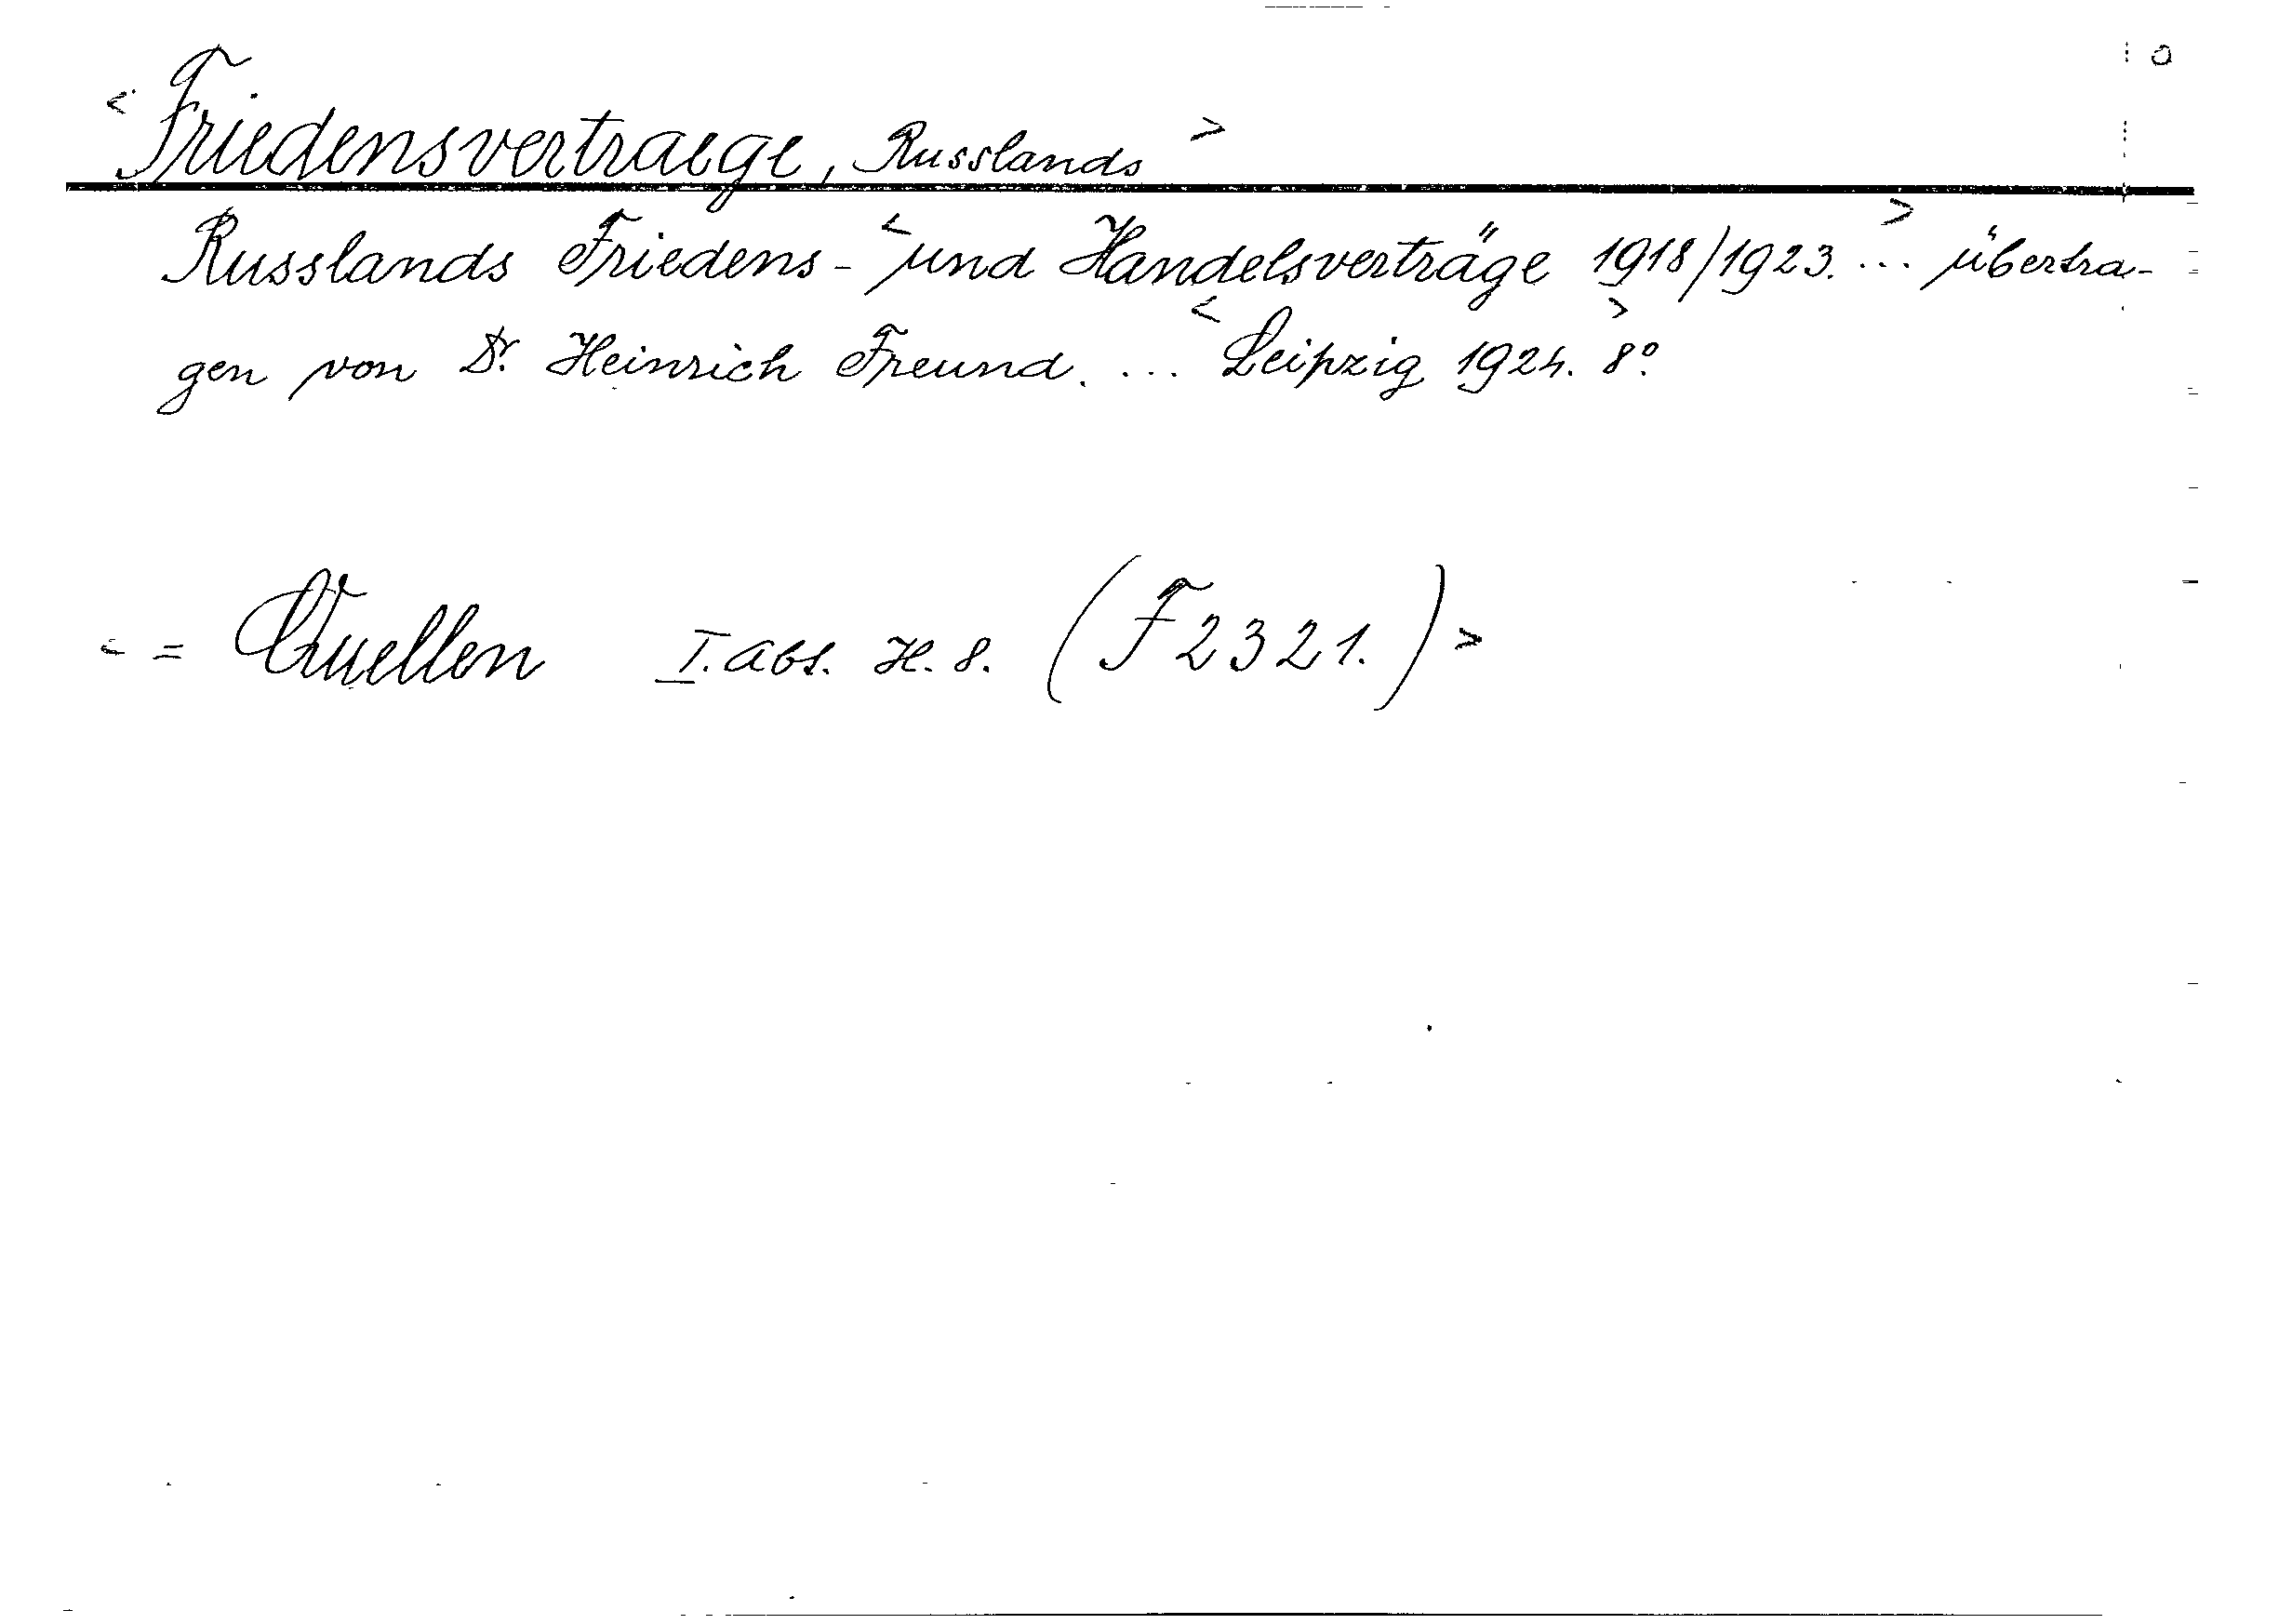 < Friedensvertraege, Russlands >
Russlands Friedens- < und Handelsverträge 1918/1923. ... > übertra-
gen von Dr. Heinrich Freund. ... < Leipzig 1924. > 8°.
< = Quellen I. Abt. H. 8. (F 2321.) >